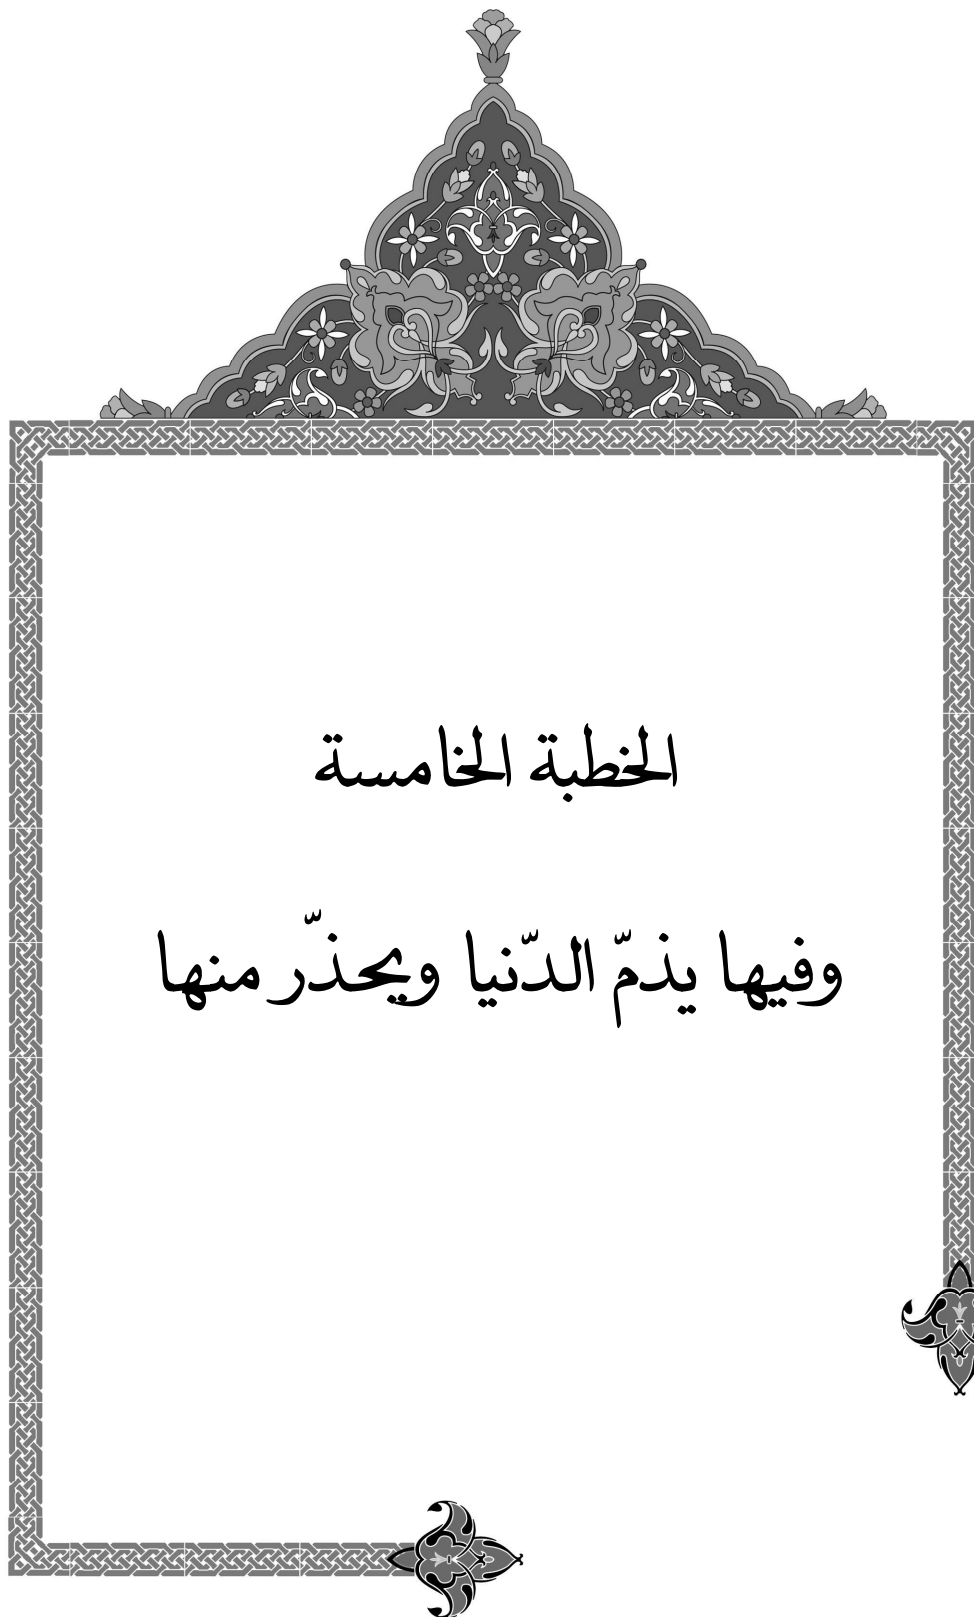 الخطبة الخامسة
وفيها يذمّ الدّنيا ويحذّر منها